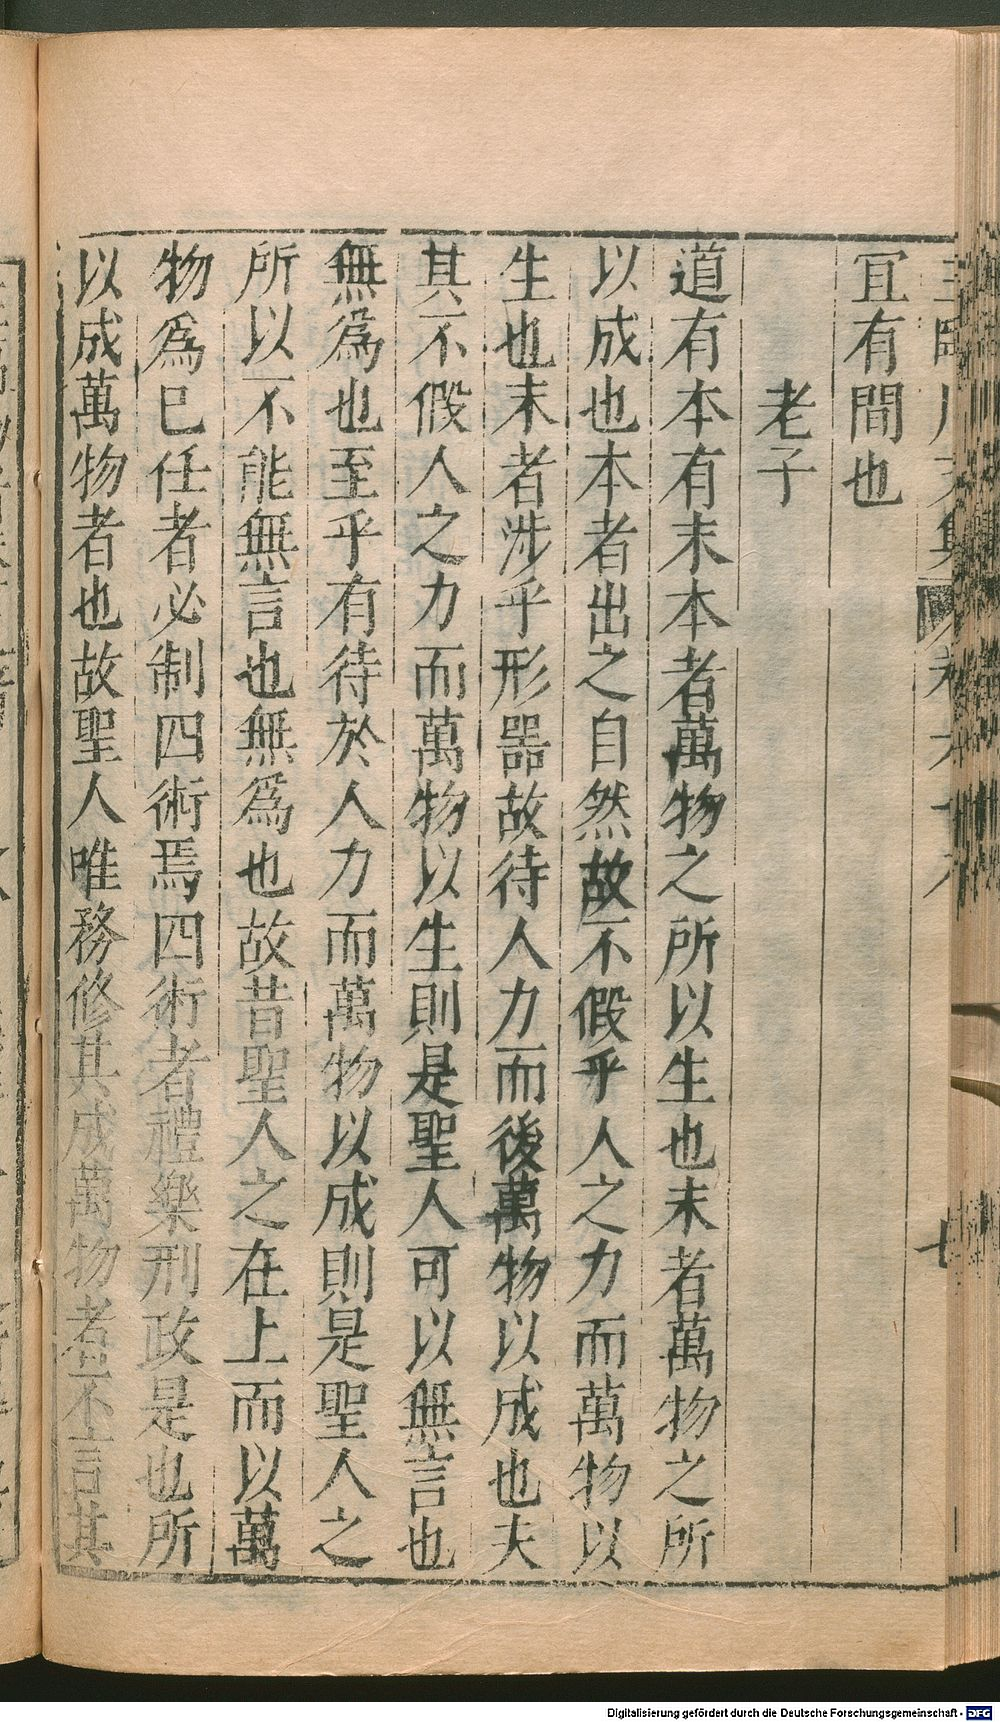 宜有間也
老子
道有本有末本者萬物之所以生也末者萬物之所
以成也本者出之自然故不假乎人之力而萬物以
生也末者涉乎形器故待人力而後萬物以成也夫
其不假人之力而萬物以生則是聖人可以無言也
無爲也至乎有待於人力而萬物以成則是聖人之
所以不能無言也無爲也故昔聖人之在上而以萬
物爲巳任者必制四術焉四術者禮樂刑政是也所
以成萬物者也故聖人唯務修其成萬物者不言其
Digitalisierung gefördert durch die Deutsche Forschungsgemeinschaft - DFG